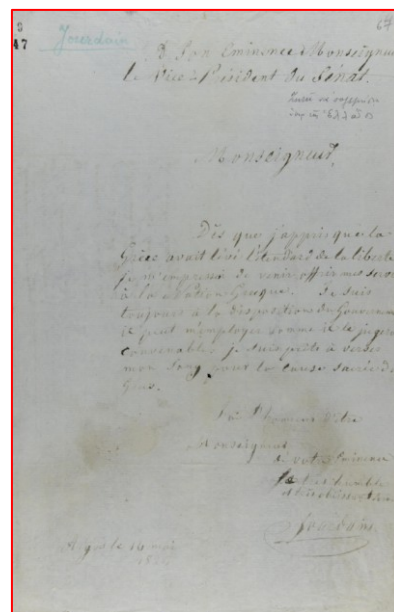 8
47
Jourdain
67
à Son Eminence Monseigneur
le Vice-Président du Sénat.
Monseigneur,
Dès que j'appris que la
Grèce avait levé l'étendard de la liberté
je m'empressé de venir offrir mes
à la Nation Grecque. Je suis
toujours à la disposition du
il peut m'employer comme il le jugera
convenable, je suis prêts à verser
mon Sang pour la cause sacrée de
Grecs.
J'ai l'honneur d'être
Monseigneur
de votre Eminence
Jourdain
Argos le 16 mai